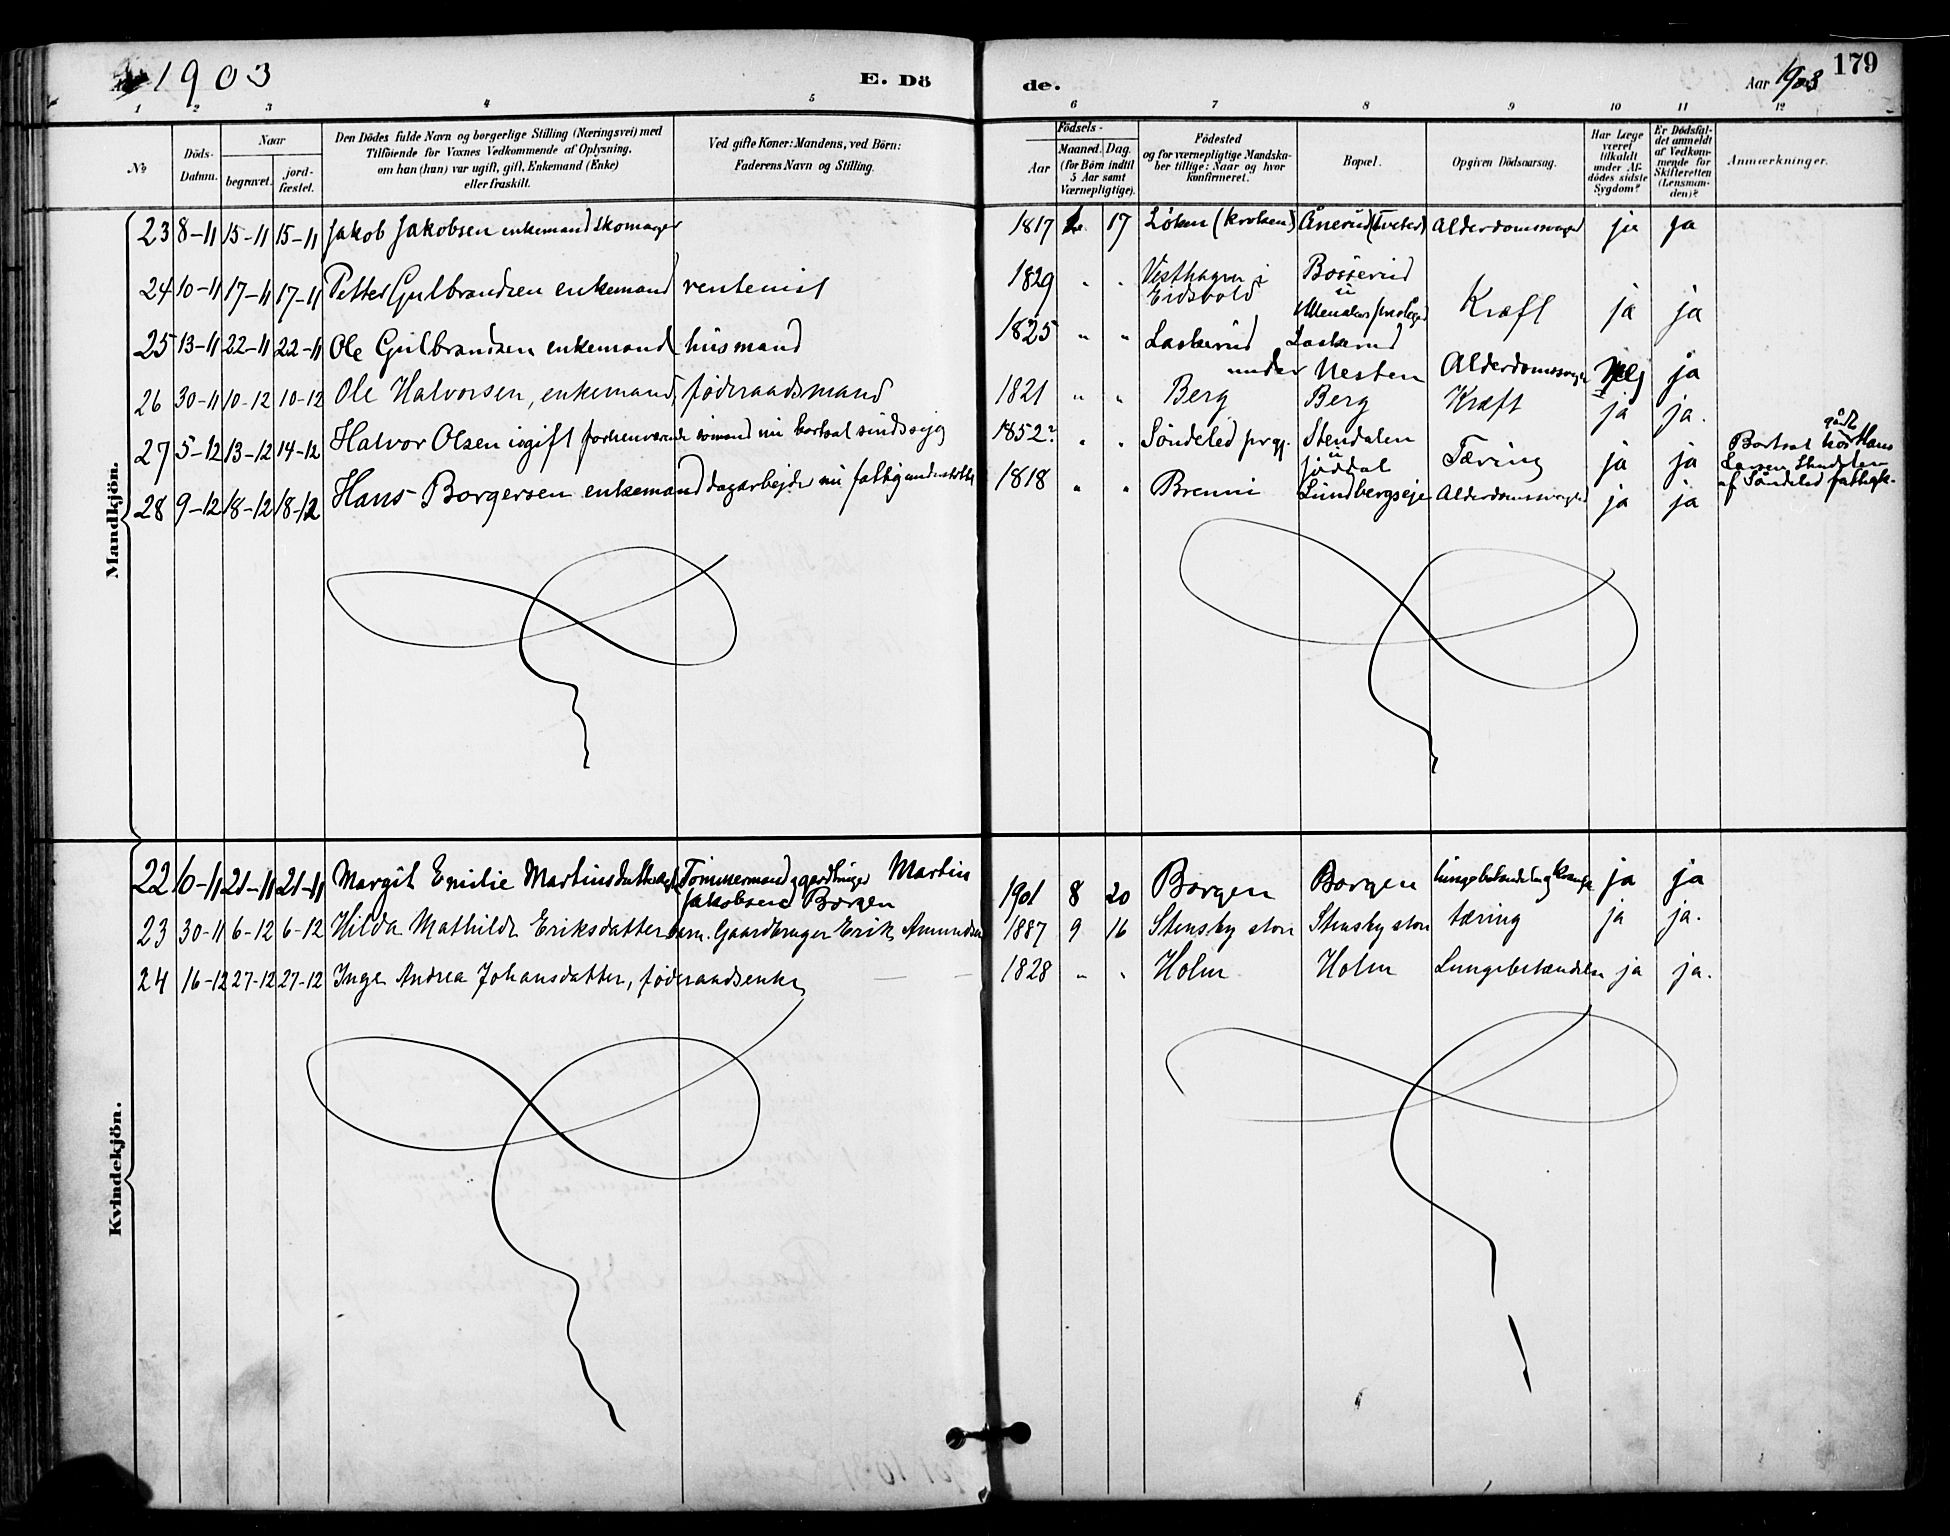 1903 E. Dö de. Aar 1903 179
1 2 3 4 5 6 7 8 9 10 11 12
No. Döds-Datum. Naar begravet. jord-fæstet. Den Dödes fulde Navn og borgerlige Stilling (Næringsvei) med Tilföiende for Voxnes Vedkommende af Oplysning, om han (hun) var ugift, gift, Enkemand (Enke) eller fraskilt. Ved gifte Koner: Mandens, ved Börn: Faderens Navn og Stilling.
Födsels- Aar Maaned. Dag. (for Börn indtil 5 Aar samt Værnepligtige). Födested og for værnepligtige Mandska-ber tillige: Naar og hvor konfirmeret. Bopæl. Opgiven Dödsaarsag. Har Læge været tilkaldt under Af-dödes sidste Sygdom? Er Dödsfal-det anmeldt af Vedkom-mende for Skifteretten (Lensman-den)? Anmærkninger.
Mandkjön.
23 8-11 15-11 15-11 Jakob Jakobsen enkemand skomager 1817 17 Løken Ånerud Alderdomssvaghed ja ja
24 10-11 17-11 17-11 Petter Gulbrandsen enkemand rentenist 1829 " " Vesthagen i Eidsvold Bøsserud i Kræft ja ja
25 13-11 22-11 22-11 Ole Gulbrandsen enkemand husmand 1825 " " Laskerud Laskerud under Nesten Alderdomssvaghed Nej ja
26 30-11 10-12 10-12 Ole Halvorsen, enkemand, føderaadsmand 1821 " " Berg Berg Kræft ja ja.
27 5-12 13-12 14-12 Halvor Olsen ugift forhenværende sømand nu bortsat sindssyg 1852? " " Søndeled prgj. Stendalen i Jøddal Tæring ja ja Bortsat hos gårdb. Hans Larsen Stendalen af Søndeled fattigk.
28 9-12 18-12 18-12 Hans Borgersen enkemand dagarbejder nu fattigunderstøttet 1818 " " Brenni Lundbergseje Alderdomssvaghed ja ja
Kvindekjön.
22 6-11 21-11 21-11 Margit Emilie Martinsdatter Tømmermand gardbruger Martin Jakobsen Borgen 1901 8 20 Borgen Borgen Lungebetændelse og Krampe ja ja
23 30-11 6-12 6-12 Hilda Mathilde Eriksdatter barn. Gaardbruger Erik Amundsen 1887 9 16 Stensby store Stensby store tæring ja ja.
24 16-12 27-12 27-12 Inger Andrea Johansdatter, føderaadsenke — — 1828 " " Holm Holm Lungebetændelse ja ja.